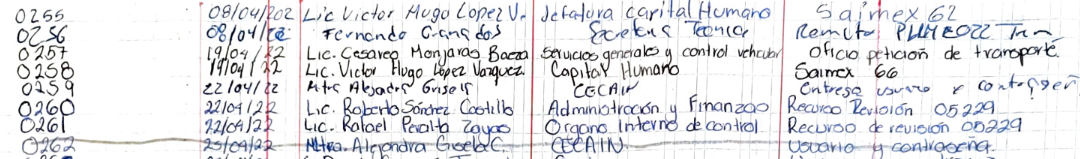 0255 08/04/202 Lic Victor Hugo Lopez V. Jefatura Capital Humano Saimex 62
0256 08/04/22 Fernando Granados Secretaria Tecnica Remito
0257 19/04/22 Lic. Cesareo Monjaras Baeza Servicios generales y control vehicular Oficio petición de transporte.
0258 19/04/22 Lic. Victor Hugo López Vazquez Capital Humano Saimex 66
0259 22/04/22 Mtra Alejadra Grisels CECAIN Entrega usuario y
0260 22/04/22 Lic. Roberto Sánchez Castillo Administración y Finanzas Recurso Revisión 05229
0261 22/04/22 Lic. Rafael Peralta Zayas Organo Interno de control Recurso de revisión 05229
0262 25/04/22 Mtra. Alejandra Gisela C. CECAIN. Usuario y contraseña.